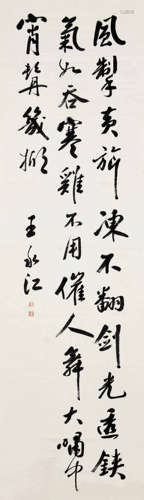 風掣旂凍不翻劍光透鋏
氣如吞寒雞不用催人舞大嘯中
宵髯幾掀
王永江